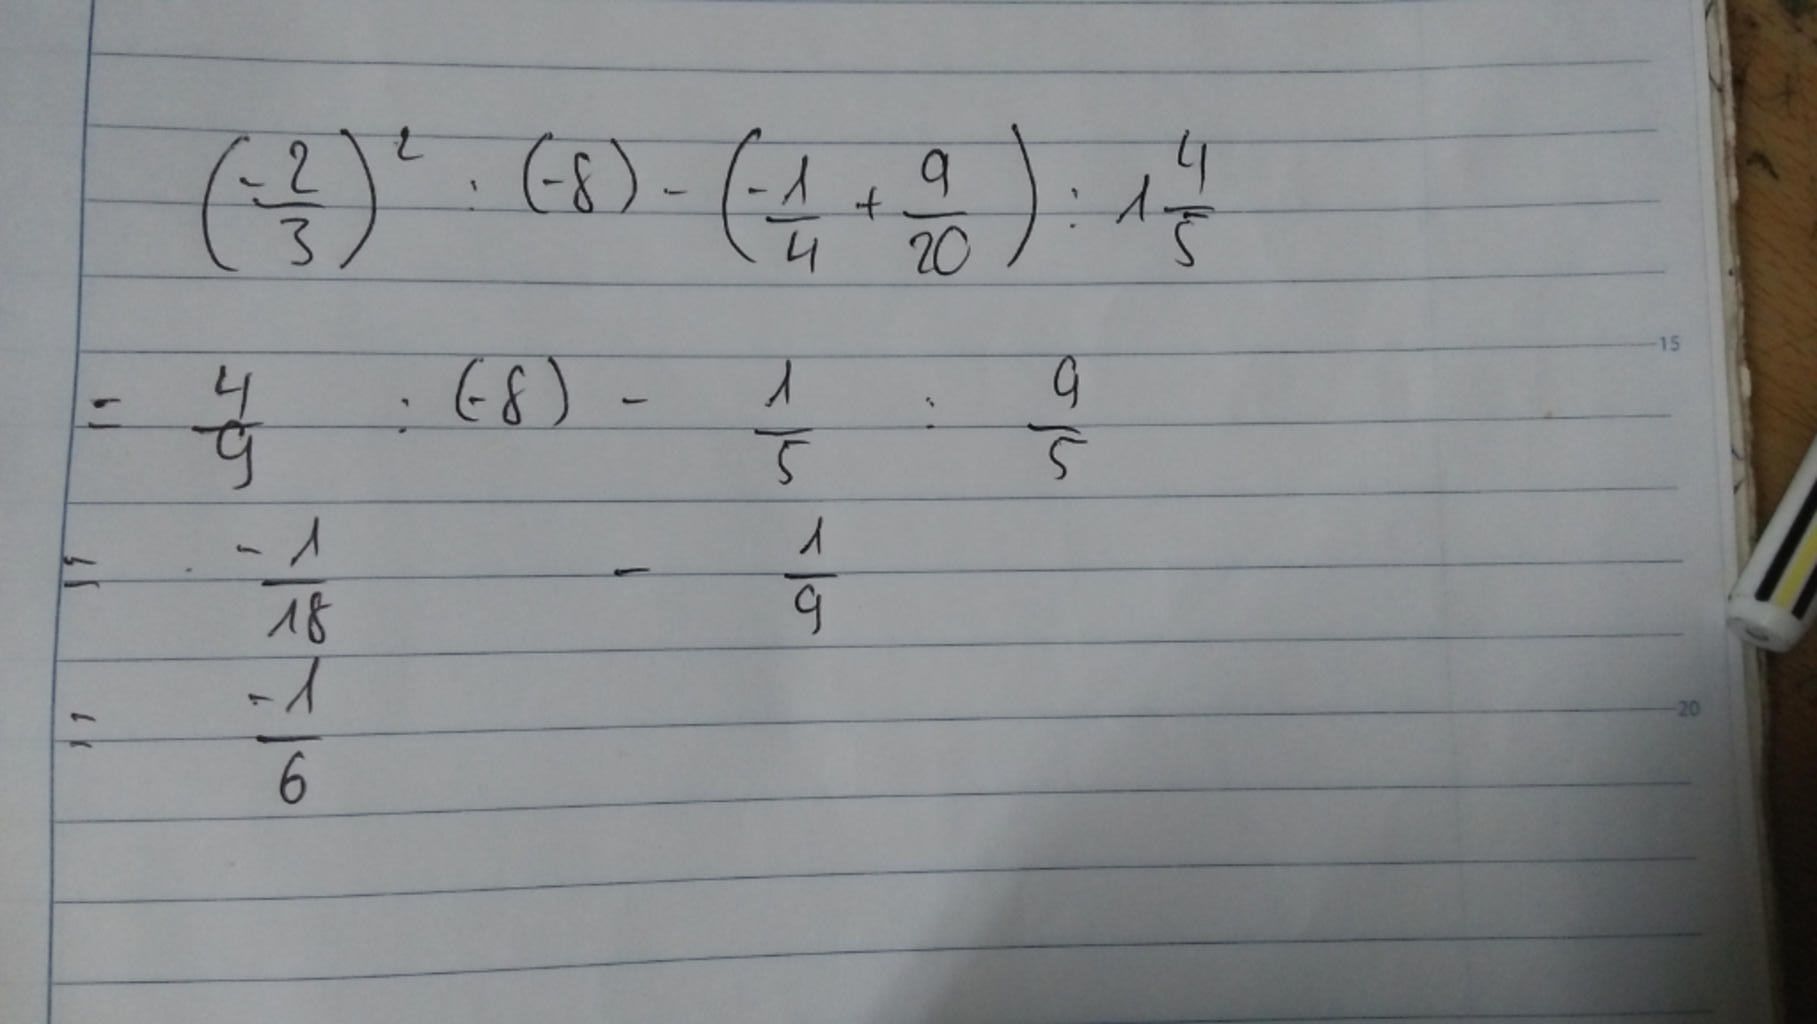 (-2/3)² : (-8) - (-1/4 + 9/20) : 1 4/5
15
= 4/9 : (-8) - 1/5 : 9/5
= -1/18 - 1/9
= -1/6
20